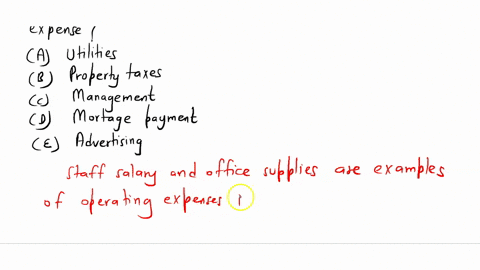 expense ?
(A) Utilities
(B) Property taxes
(C) Management
(D) Mortage payment
(E) Advertising
Staff salary and office supplies are examples
of operating expenses